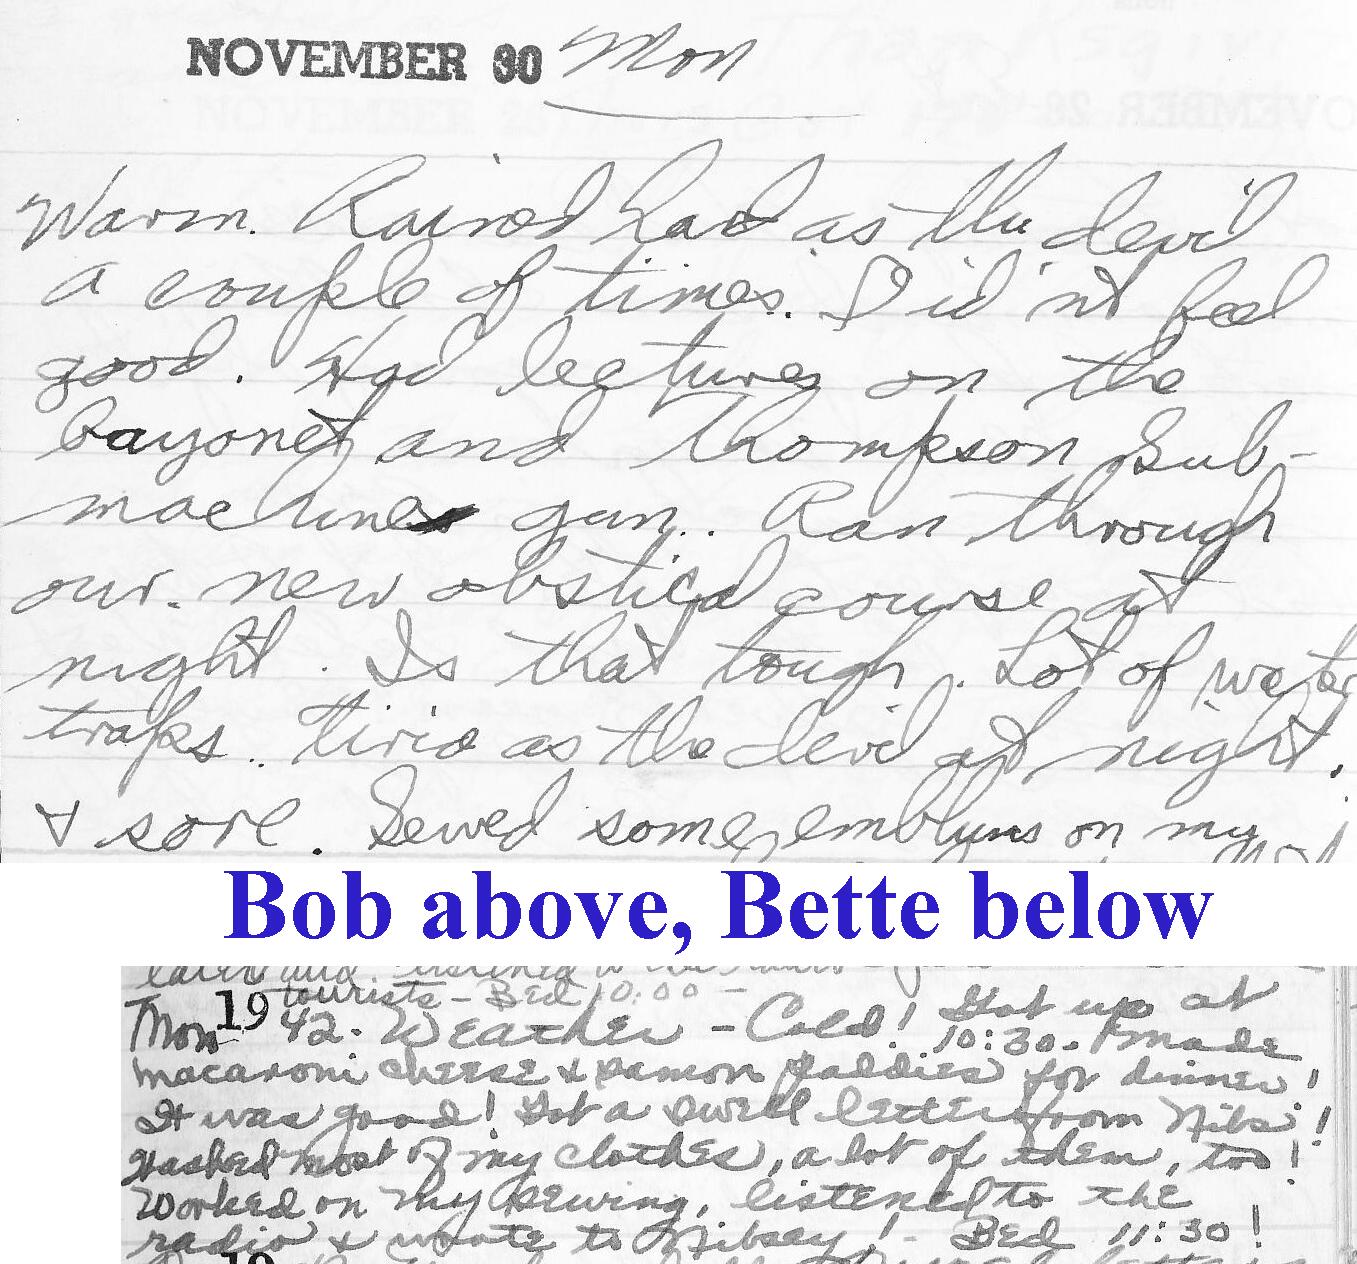 NOVEMBER 30 Mon
Warm. Rained hard as the devil
a couple of times. Did'nt feel
good. Had lectures on the
bayonet and Thompson Sub-
machine gun. Ran through
our new obsticel course at
night. Is that tough. Lot of water
traps. Tired as the devil at night.
& sore. Sewed some emblems on my
Bob above, Bette below
tourists - Bed 10:00 -
Mon 1942. Weather - Cold! Got up at
10:30. I made
macaroni cheese & salmon paddies for dinner!
It was good! Got a swell letter from Nibs!
Washed most of my clothes, a lot of them, too!
Worked on my sewing, listened to the
radio & wrote to Nibsey! - Bed 11:30!
19